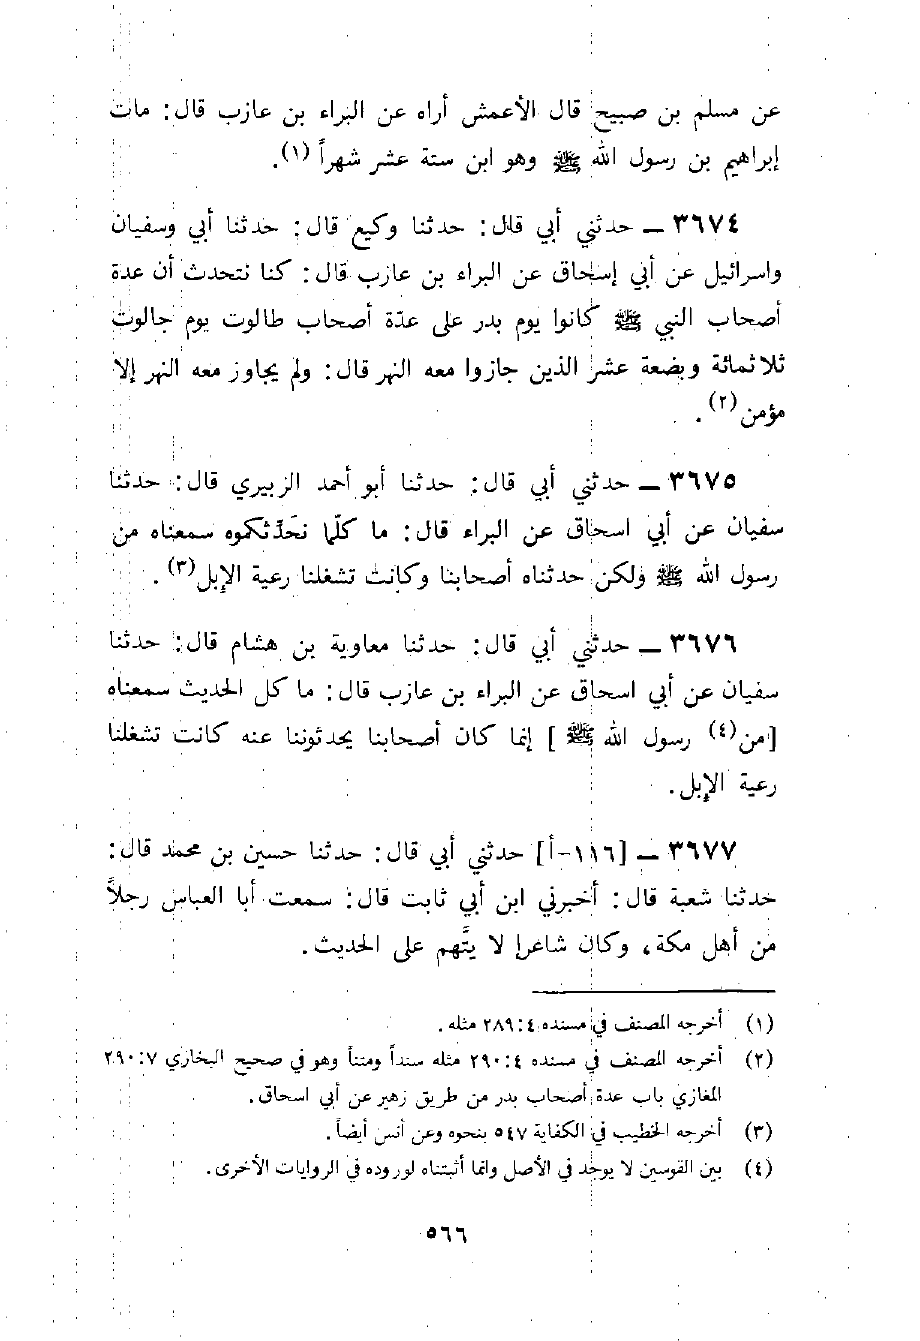 عن مسلم بن صبيح قال الأعمش أراه عن البراء بن عازب قال: مات
إبراهيم بن رسول الله ﷺ وهو ابن ستة عشر شهراً (١).
٣٦٧٤ ـ حدثني أبي قال: حدثنا وكيع قال: حدثنا أبي وسفيان
واسرائيل عن أبي إسحاق عن البراء بن عازب قال: كنا نتحدث أن عدة
أصحاب النبي ﷺ كانوا يوم بدر على عدّة أصحاب طالوت يوم جالوت
ثلاثمائة وبضعة عشر الذين جازوا معه النهر قال: ولم يجاوز معه النهر إلا
مؤمن (٢).
٣٦٧٥ ـ حدثني أبي قال: حدثنا أبو أحمد الزبيري قال: حدثنا
سفيان عن أبي اسحاق عن البراء قال: ما كلّما نحَدّثكموه سمعناه من
رسول الله ﷺ ولكن حدثناه أصحابنا وكانت تشغلنا رعية الإبل (٣).
٣٦٧٦ ـ حدثني أبي قال: حدثنا معاوية بن هشام قال: حدثنا
سفيان عن أبي اسحاق عن البراء بن عازب قال: ما كل الحديث سمعناه
[من (٤) رسول الله ﷺ] إنما كان أصحابنا يحدثوننا عنه كانت تشغلنا
رعية الإبل.
٣٦٧٧ ـ [١١٦-أ] حدثني أبي قال: حدثنا حسين بن محمد قال:
حدثنا شعبة قال: أخبرني ابن أبي ثابت قال: سمعت أبا العباس رجلاً
من أهل مكة، وكان شاعرا لا يتَّهم على الحديث.
(١) أخرجه المصنف في مسنده ٤: ٢٨٩ مثله.
(٢) أخرجه المصنف في مسنده ٤: ٢٩٠ مثله سنداً ومتناً وهو في صحيح البخاري ٧: ٢٩٠
المغازي باب عدة أصحاب بدر من طريق زهير عن أبي اسحاق.
(٣) أخرجه الخطيب في الكفاية ٥٤٧ بنحوه وعن أنس أيضاً.
(٤) بين القوسين لا يوجد في الأصل وانما أثبتناه لوروده في الروايات الأخرى.
٥٦٦